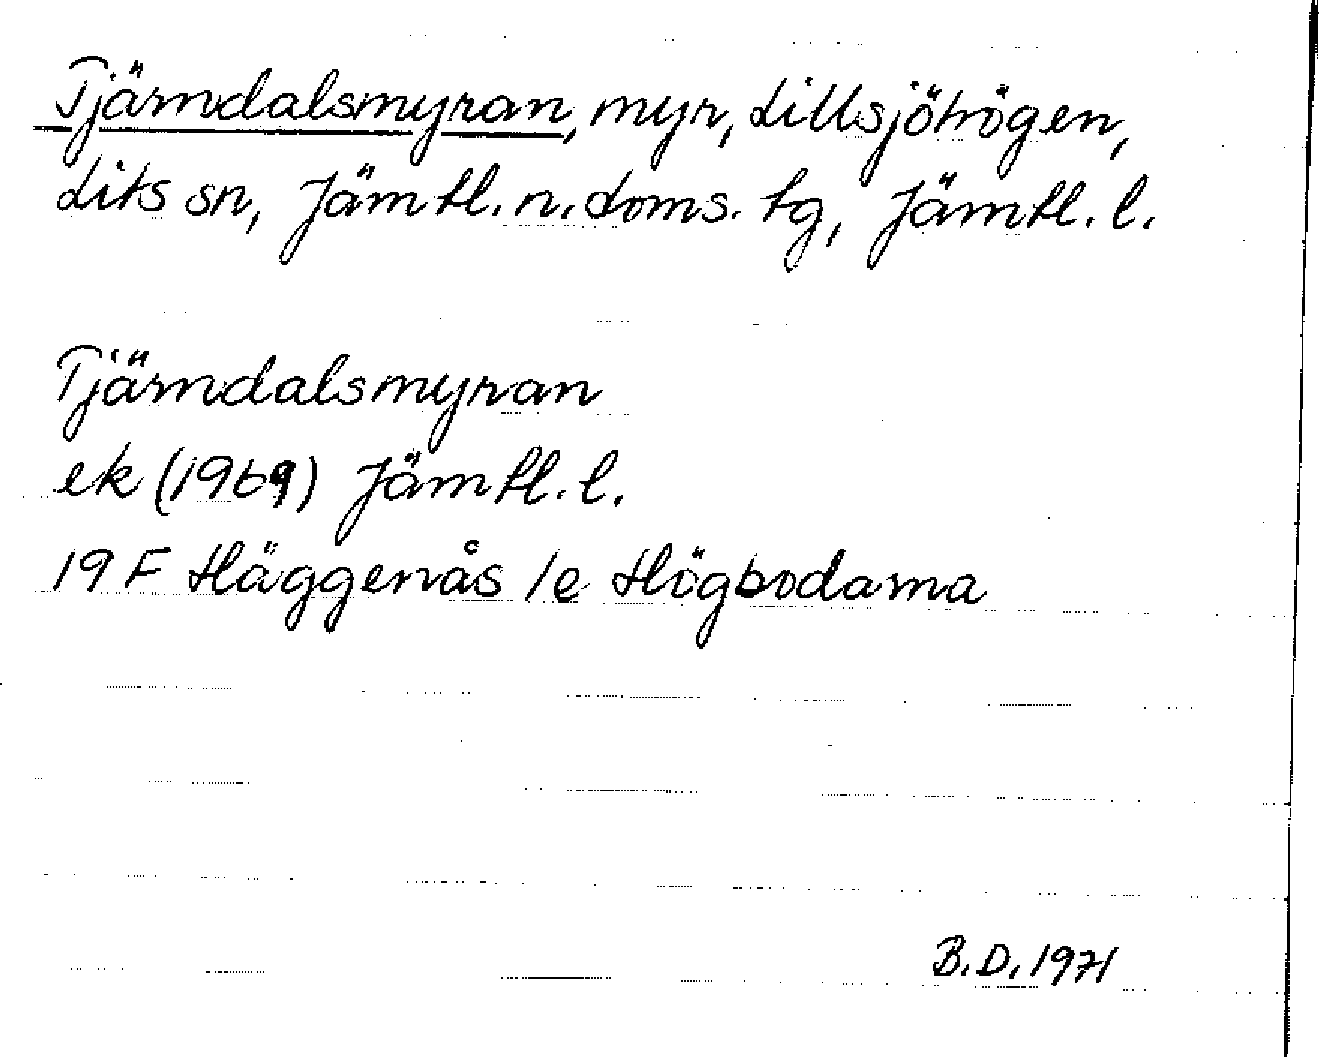 Tjärndalsmyran, myr, Lillsjöhögen,
Lits sn, Jämtl. n. doms. tg, Jämtl. l.
Tjärndalsmyran
ek (1969) Jämtl. l.
19 F Häggenås 1e Högbodarna
B.D. 1971